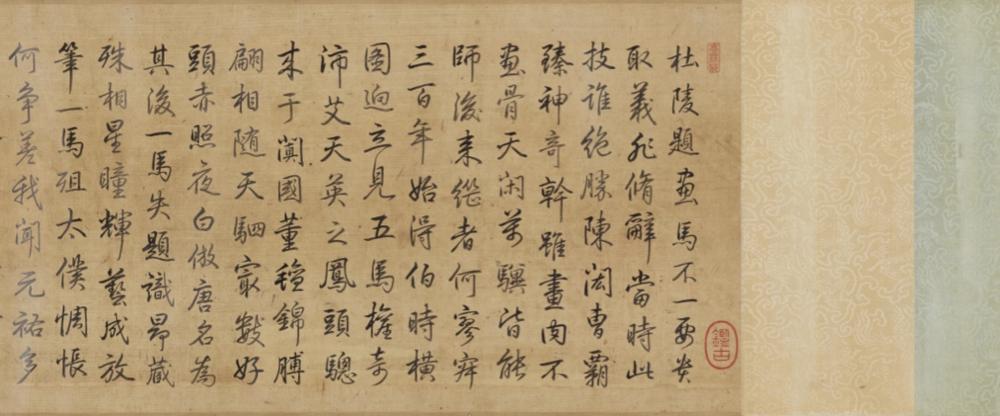 杜陵題畫馬不一要貴
取義非脩辭當時此
技誰絕勝陳閎曹霸
臻神奇幹雖畫肉不
畫骨天閑萬驥皆能
師後来繼者何寥寂
三百年始得伯時橫
圖迥立見五馬權奇
沛艾天英之鳳頭驄
来于闐國董氊錦膊
翩相随天駟㝡數好
頭赤照夜白倣唐名為
其後一馬失題識昂蔵
殊相星瞳輝藝成放
筆一馬殂太僕惆悵
何爭差我聞元祐多
鑑古